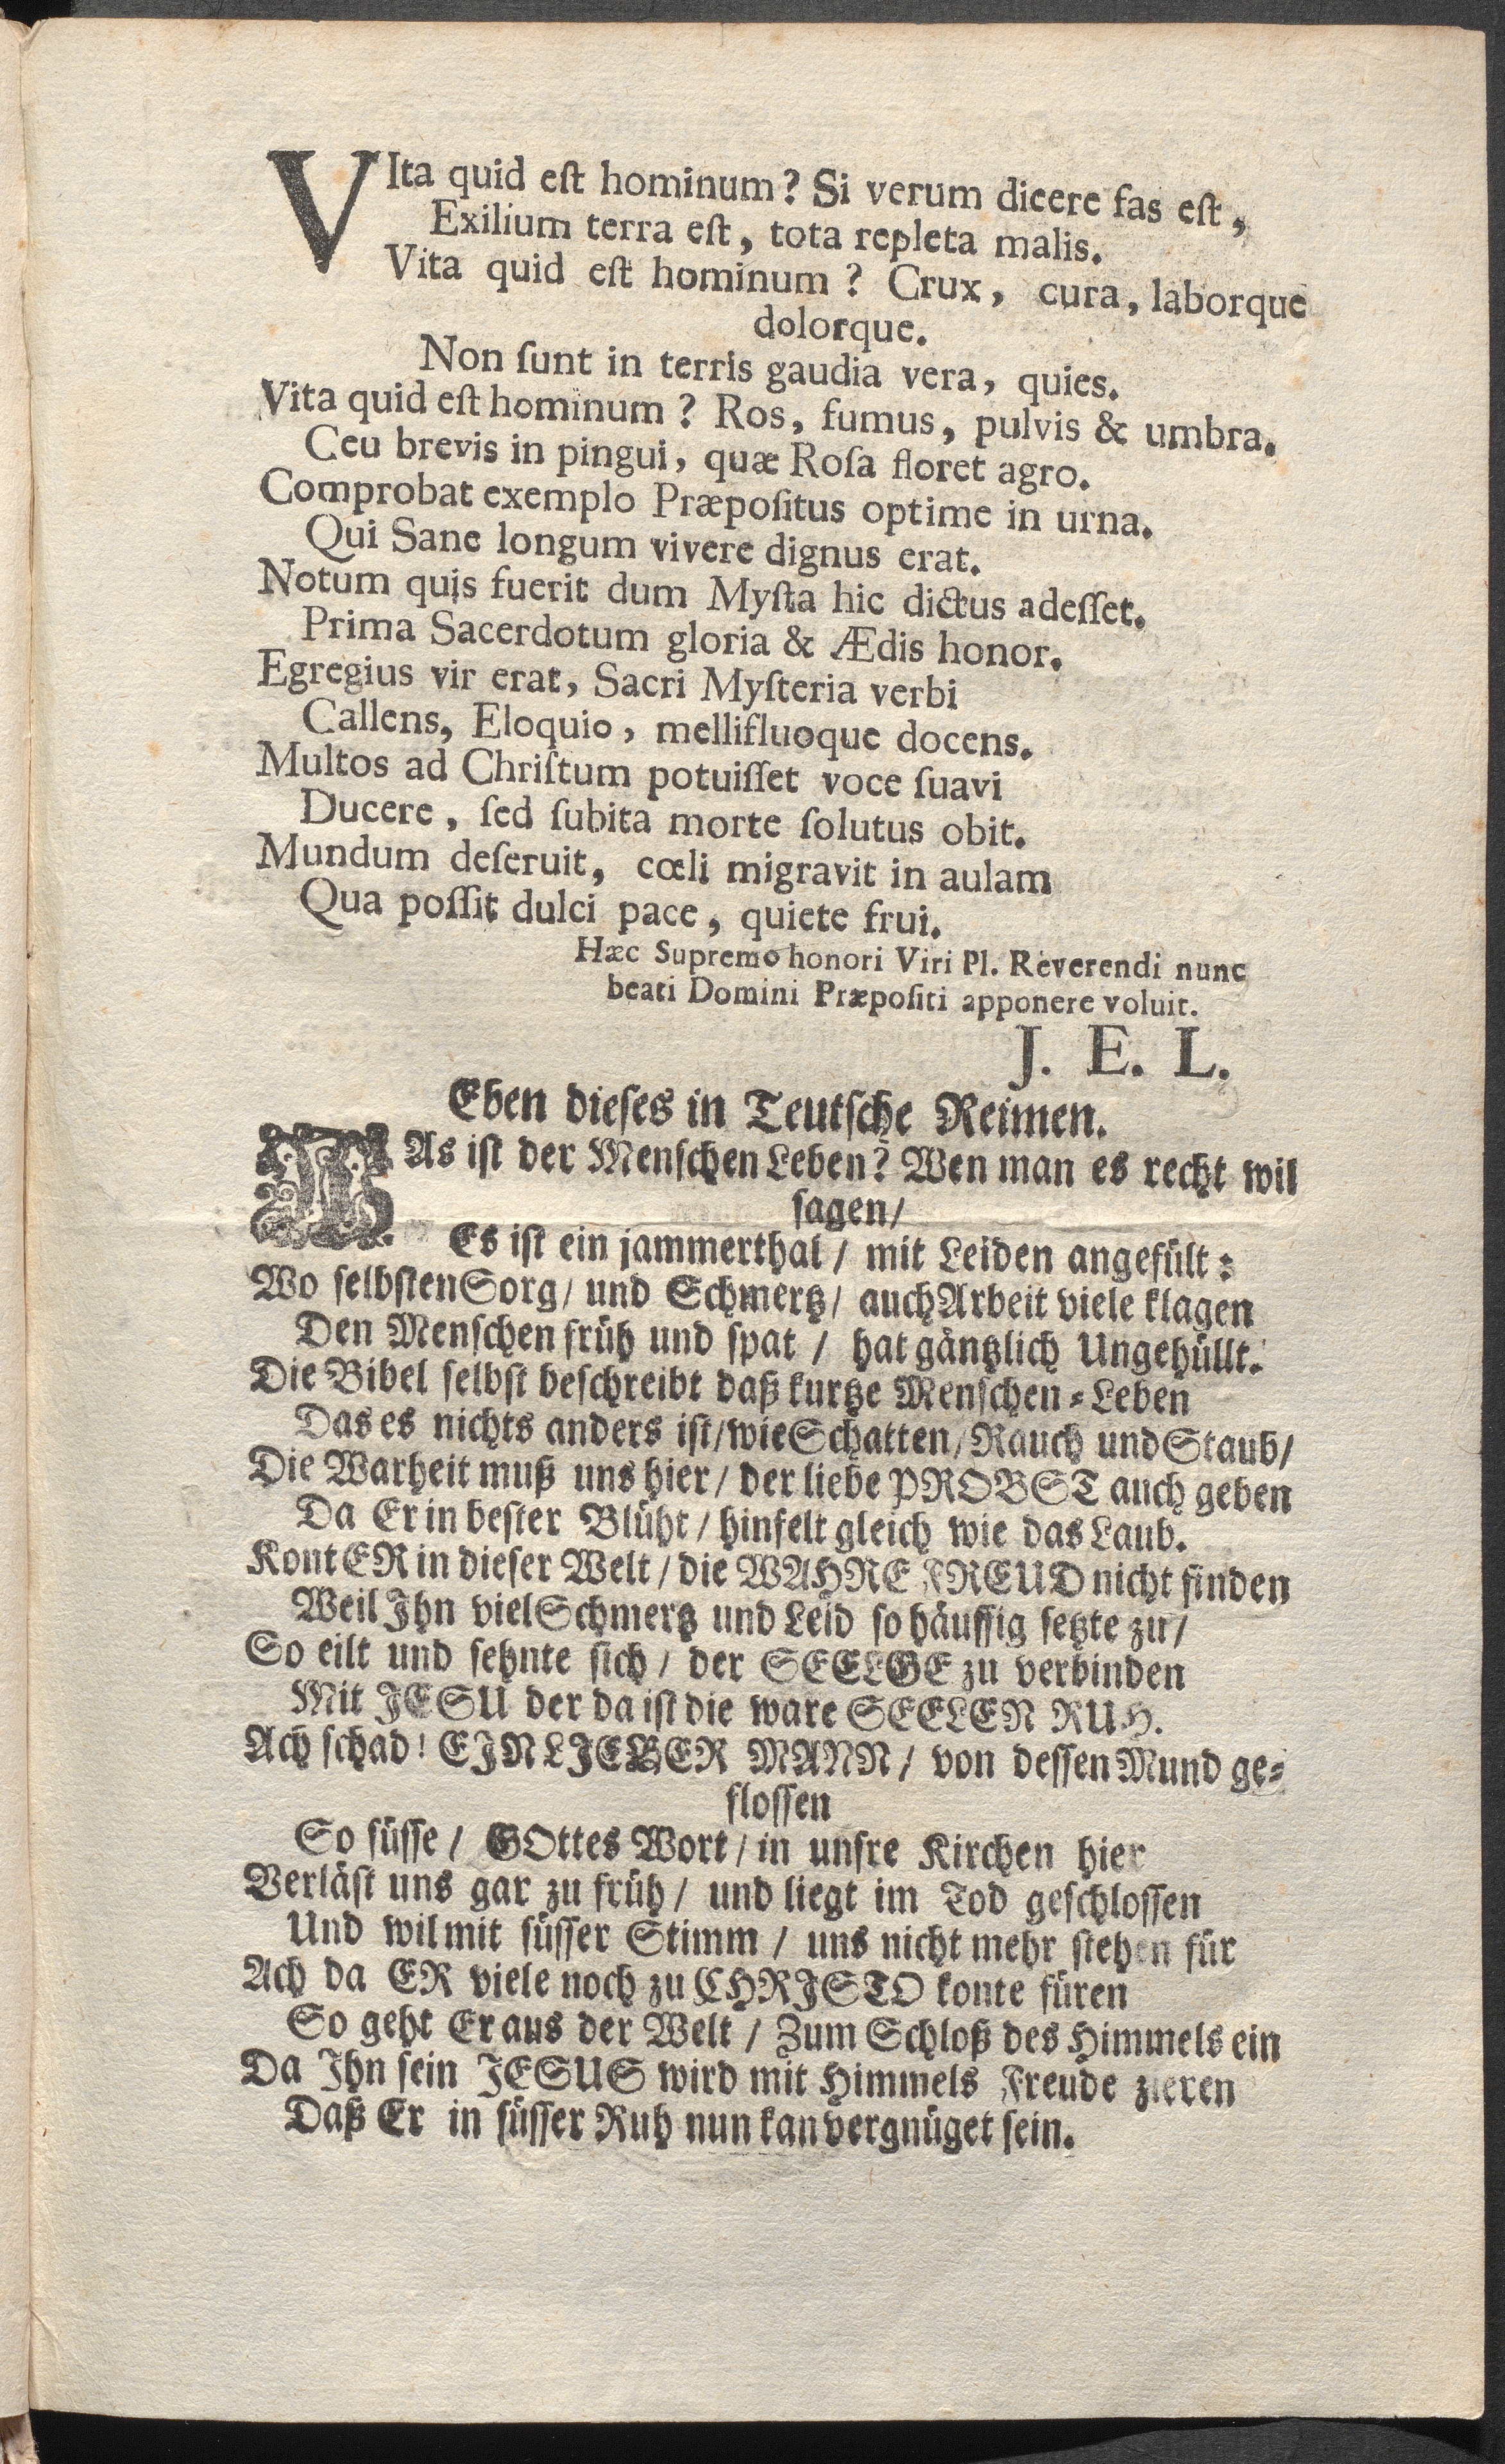 VIta quid eſt hominum? Si verum dicere fas eſt,
Exilium terra eſt, tota repleta malis.
Vita quid eſt hominum? Crux, cura, laborque
dolorque.
Non ſunt in terris gaudia vera, quies.
Vita quid eſt hominum? Ros, fumus, pulvis & umbra.
Ceu brevis in pingui, quæ Roſa floret agro.
Comprobat exemplo Præpoſitus optime in urna.
Qui Sane longum vivere dignus erat.
Notum quis fuerit dum Myſta hic dictus adeſſet.
Prima Sacerdotum gloria & Ædis honor.
Egregius vir erat, Sacri Myſteria verbi
Callens, Eloquio, mellifluoque docens.
Multos ad Chriſtum potuiſſet voce ſuavi
Ducere, ſed ſubita morte ſolutus obit.
Mundum deſeruit, cœli migravit in aulam
Qua poſſit dulci pace, quiete frui.
Hæc Supremo honori Viri Pl. Reverendi nunc
beati Domini Præpoſiti apponere voluit.
J. E. L.
Eben dieses in Teutsche Reimen.
WAs ist der Menschen Leben? Wen man es recht wil
sagen/
Es ist ein jammerthal/ mit Leiden angefült:
Wo selbsten Sorg/ und Schmertz/ auch Arbeit viele klagen
Den Menschen früh und spat/ hat gäntzlich Ungehüllt.
Die Bibel selbst beschreibt daß kurtze Menschen-Leben
Das es nichts anders ist/ wie Schatten/ Rauch und Staub/
Die Warheit muß uns hier/ der liebe PROBST auch geben
Da Er in bester Blüht/ hinfelt gleich wie das Laub.
Kont ER in dieser Welt/ die WAHRE FREUD nicht finden
Weil Ihn viel Schmertz und Leid so häuffig setzte zu/
So eilt und sehnte sich/ der SEELGE zu verbinden
Mit JESU der da ist die ware SEELEN RUH.
Ach schad! EIN LIEBER MANN/ von dessen Mund ge-
flossen
So süsse/ GOttes Wort/ in unsre Kirchen hier
Verläst uns gar zu früh/ und liegt im Tod geschlossen
Und wil mit süsser Stimm/ uns nicht mehr stehen für
Ach da ER viele noch zu CHRISTO konte füren
So geht Er aus der Welt/ Zum Schloß des Himmels ein
Da Ihn sein JESUS wird mit Himmels Freude zieren
Daß Er in süsser Ruh nun kan vergnüget sein.